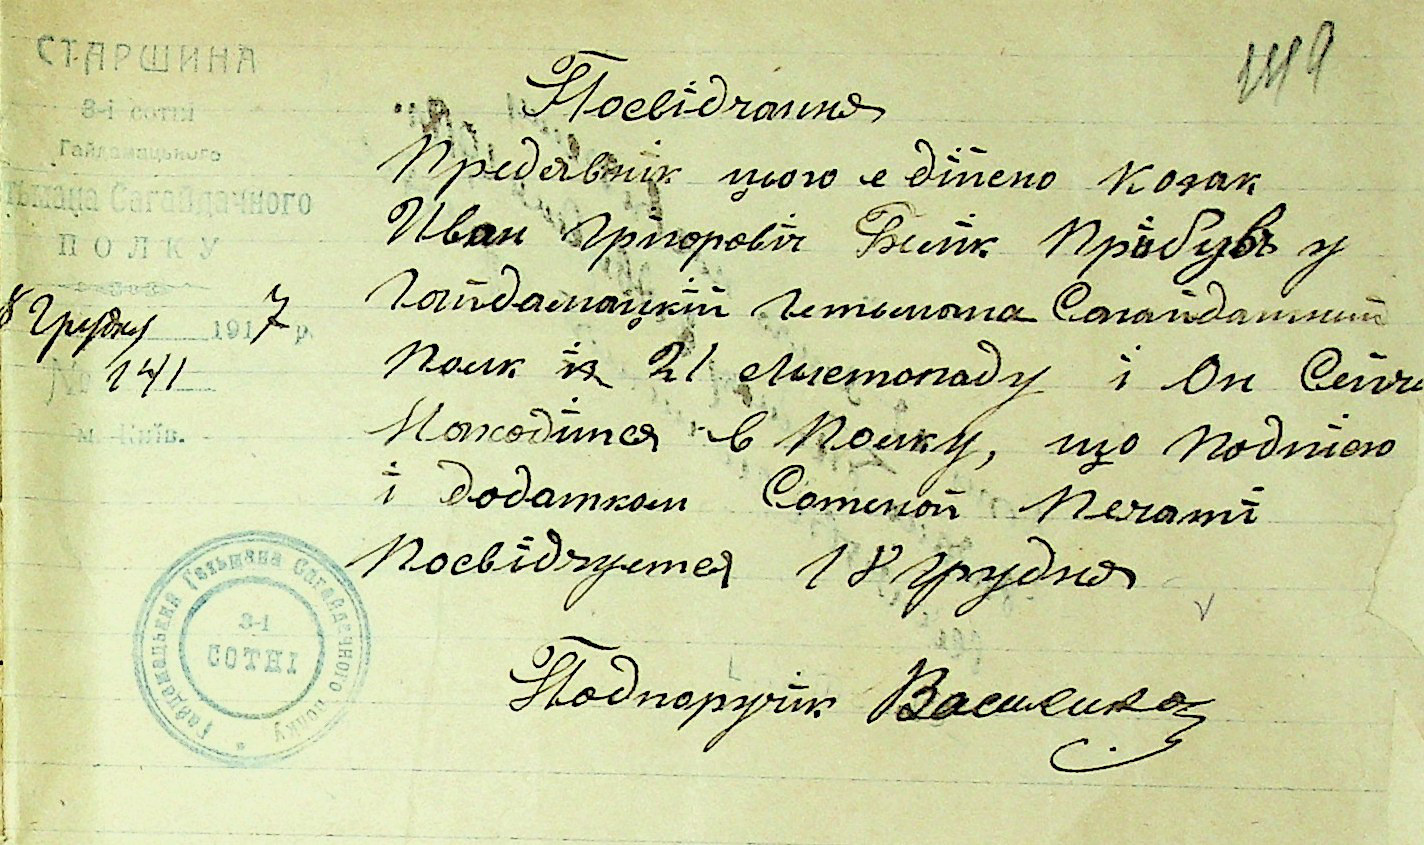 СТАРШИНА
3-і сотні
Гайдамацького
тьмана Сагайдачного
ПОЛКУ
8 Грудня 1917 р.
№ 141
м. Київ.
149
Посвідчання
Предявнік цього є дійсно Козак
Иван Грігоровіч Білік Прібувъ у
Гайдамацкій Гетьмана Сагайдачний
Полк із 21 Листопаду і Он Сейча
Находітся в Полку, що Подписю
і Додатком Сотеной Печаті
Посвідчуется 18 Грудня
Подпоручік
Гайдамацького Гетьмана Сагайдачного полку
3-і
СОТНІ